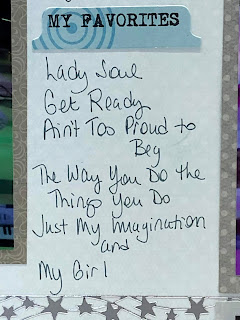 MY FAVORITES
Lady Soul
Get Ready
Ain't Too Proud to
Beg
The Way You Do the
Things You Do
Just My Imagination
and
My Girl